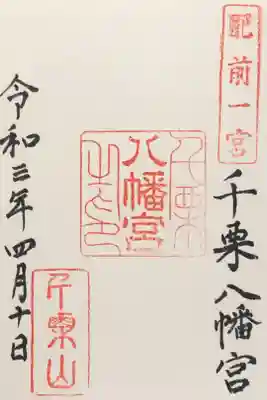 肥前一宮
千栗八幡宮
八幡宮
令和三年四月十日
千栗山